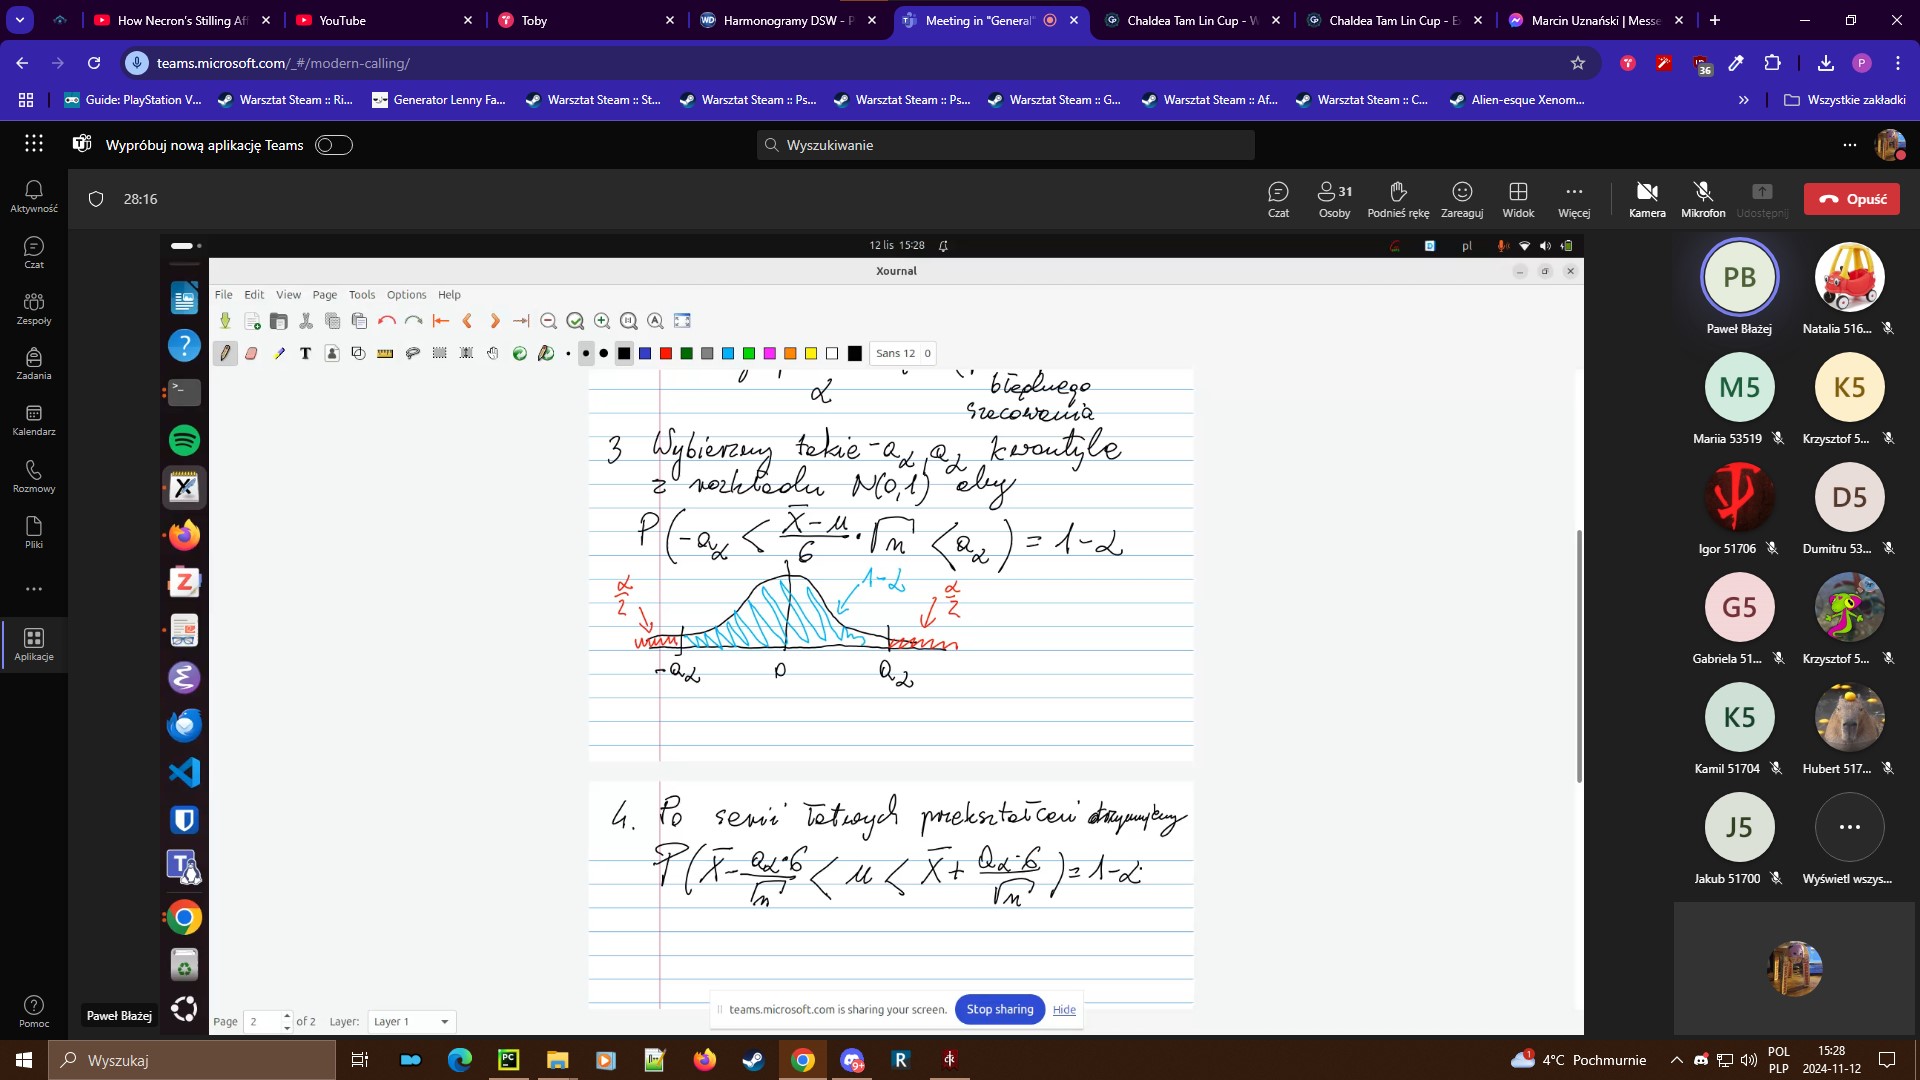 How Necron's Stilling Af
YouTube
Toby
Harmonogramy DSW - P
Meeting in "General"
Chaldea Tam Lin Cup - W
Chaldea Tam Lin Cup - E
Marcin Uznański | Messe
teams.microsoft.com/_#/modern-calling/
36
P
Guide: PlayStation V...
Warsztat Steam :: Ri...
Generator Lenny Fa...
Warsztat Steam :: St...
Warsztat Steam :: Ps...
Warsztat Steam :: Ps...
Warsztat Steam :: G...
Warsztat Steam :: Af...
Warsztat Steam :: C...
Alien-esque Xenom...
Wszystkie zakładki
Wypróbuj nową aplikację Teams
Wyszukiwanie
28:16
Czat
31
Osoby
Podnieś rękę
Zareaguj
Widok
Więcej
Kamera
Mikrofon
Udostępnij
Opuść
Aktywność
Czat
Zespoły
Zadania
Kalendarz
Rozmowy
Pliki
Aplikacje
Pomoc
12 lis 15:28
pl
Xournal
File Edit View Page Tools Options Help
Sans 12 0
α
błędnego
szacowania
3 Wybierzmy takie -a_α, a_α kwantyle
z rozkładu N(0,1) aby
P(-a_α < (X̄-μ)/σ · √n < a_α) = 1-α
α/2
1-α
α/2
-a_α 0 a_α
4. Po serii łatwych przekształceń otrzymujemy
P(X̄ - a_α·σ/√n < μ < X̄ + a_α·σ/√n) = 1-α
teams.microsoft.com is sharing your screen. Stop sharing Hide
Page 2 of 2 Layer: Layer 1
Paweł Błażej
PB
Paweł Błażej
Natalia 516...
M5
Mariia 53519
K5
Krzysztof 5...
Igor 51706
D5
Dumitru 53...
G5
Gabriela 51...
Krzysztof 5...
K5
Kamil 51704
Hubert 517...
J5
Jakub 51700
Wyświetl wszys...
Wyszukaj
4°C Pochmurnie
POL
PLP
15:28
2024-11-12